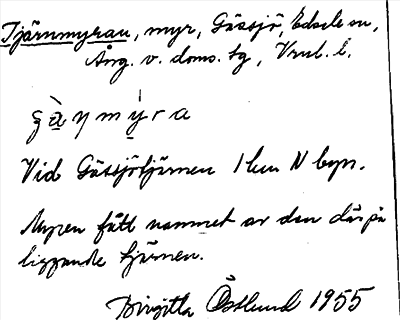 Tjärnmyran, myr, Gåssjö, Edsele sn,
Ång. v. doms. tg, Vnl. l.
Vid Gåssjötjärnen 1 km N byn.
Myren fått namnet av den därpå
liggande tjärnen.
Birgitta Östlund 1955